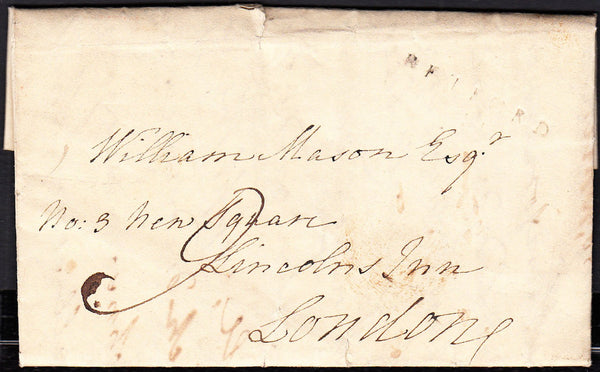 William Mason Esqr
No: 3 New Square
Lincolns Inn
London